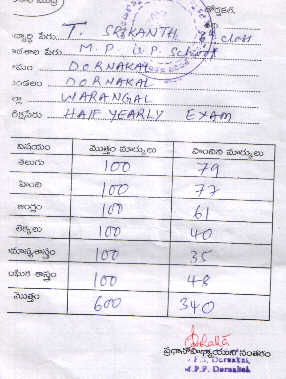 ద్యార్థి పేరు T. SRIKANTH 6th class
ఠశాల పేరు M.P. U.P. School
DORNAKAL
ండలం DORNAKAL
ల్లా WARANGAL
రీక్షపేరు HALF YEARLY EXAM
విషయం మొత్తం మార్కులు పొందిన మార్కులు
తెలుగు 100 79
హింది 100 77
ఇంగ్లీషు 100 61
లెక్కలు 100 40
100 35
ంఘిక శాస్త్రం 100 48
మొత్తం 600 340
ప్రధానోపాధ్యాయుని సంతకం
Dornakal,
M.P.P. Dornakal